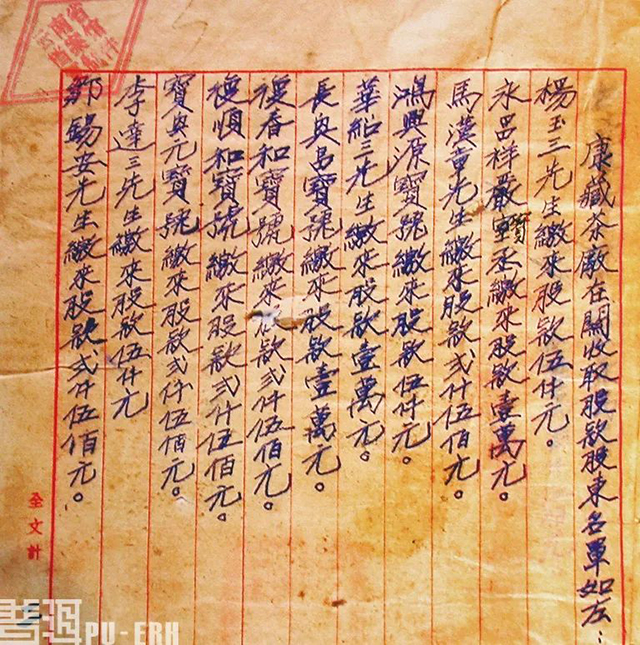 康藏茶廠在關收取股款股東名單如左：
楊玉三先生繳來股款伍仟元。
永昌祥嚴寶丞繳來股款壹萬元。
馬漢章先生繳來股款弍仟伍佰元。
鴻興源寶號繳來股款伍仟元。
華紹三先生繳來股款壹萬元。
長興昌寶號繳來股款壹萬元。
復春和寶號繳來股款弍仟伍佰元。
復順和寶號繳來股款弍仟伍佰元。
寶興元寶號繳來股款弍仟伍佰元。
李達三先生繳來股款伍仟元
鄒錫安先生繳來股款弍仟伍佰元。
全文計
普洱
PU-ERH